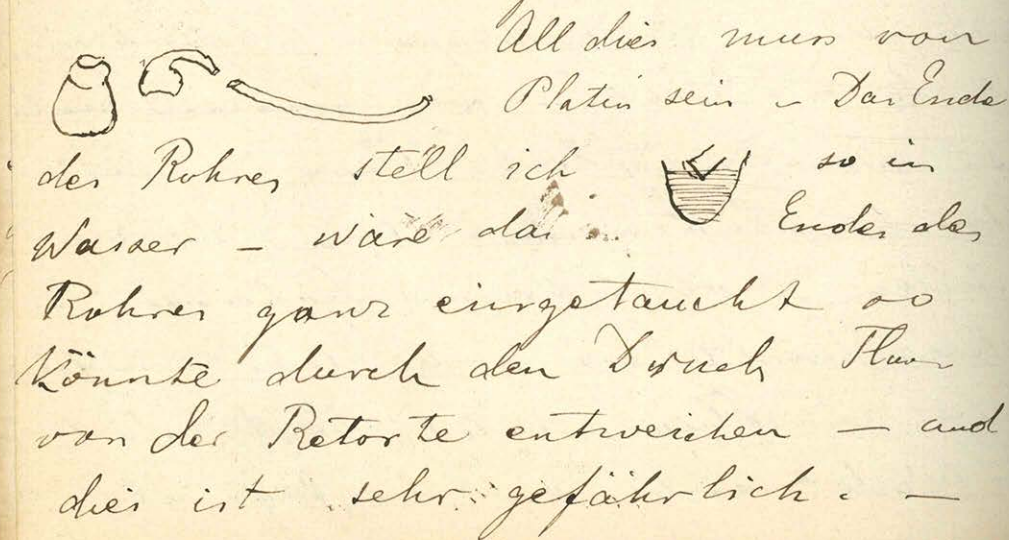 All dies muss von
Platin sein – Das Ende
des Rohres stell ich so in
Wasser – wäre das Ende des
Rohres ganz eingetaucht so
könnte durch den Druck Fluor
von der Retorte entweichen – und
dies ist sehr gefährlich. –